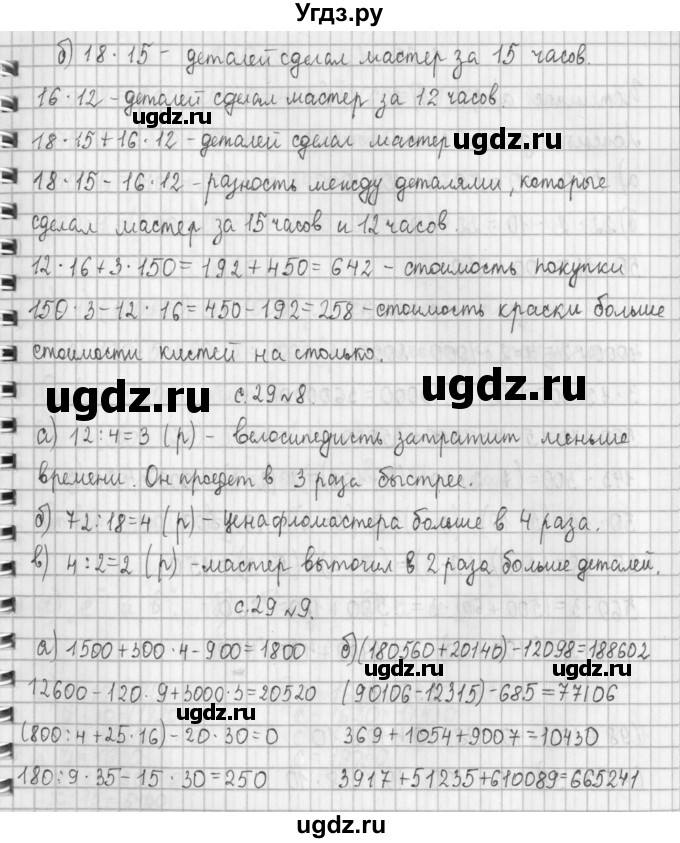 Угдз.ру
б) 18 · 15 - деталей сделал мастер за 15 часов.
16 · 12 - деталей сделал мастер за 12 часов
ugdz.ru
18 · 15 + 16 · 12 - деталей сделал мастер
ugdz.ru
18 · 15 - 16 · 12 - разность между деталями, которые
сделал мастер за 15 часов и 12 часов.
ugdz.ru
12 · 16 + 3 · 150 = 192 + 450 = 642 - стоимость покупки
150 · 3 - 12 · 16 = 450 - 192 = 258 - стоимость краски больше
стоимости кистей на столько.
ugdz.ru
с. 29 №8.
ugdz.ru
а) 12 : 4 = 3 (р) - велосипедисть затратит меньше
времени. Он проедет в 3 раза быстрее.
б) 72 : 18 = 4 (р) - цена фломастера больше в 4 раза.
в) 4 : 2 = 2 (р) - мастер выточил в 2 раза больше деталей.
ugdz.ru
с. 29 №9.
а) 1500 + 300 · 4 - 900 = 1800 б) (180560 + 20140) - 12098 = 188602
ugdz.ru
12600 - 120 · 9 + 3000 · 3 = 20520 (90106 - 12315) - 685 = 77106
ugdz.ru
(800 : 4 + 25 · 16) - 20 · 30 = 0 369 + 1054 + 9007 = 10430
180 : 9 · 35 - 15 · 30 = 250 3917 + 51235 + 610089 = 665241
ugdz.ru
ugdz.ru